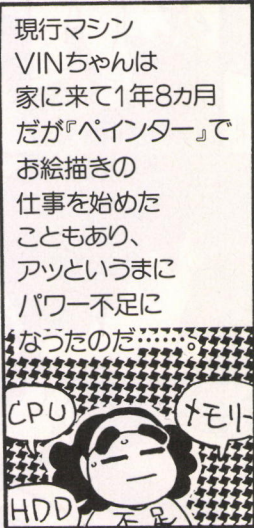 現行マシン
VINちゃんは
家に来て1年8ヵ月
だが『ペインター』で
お絵描きの
仕事を始めた
こともあり、
アッというまに
パワー不足に
なったのだ……。
CPU
メモリー
HDD
不足